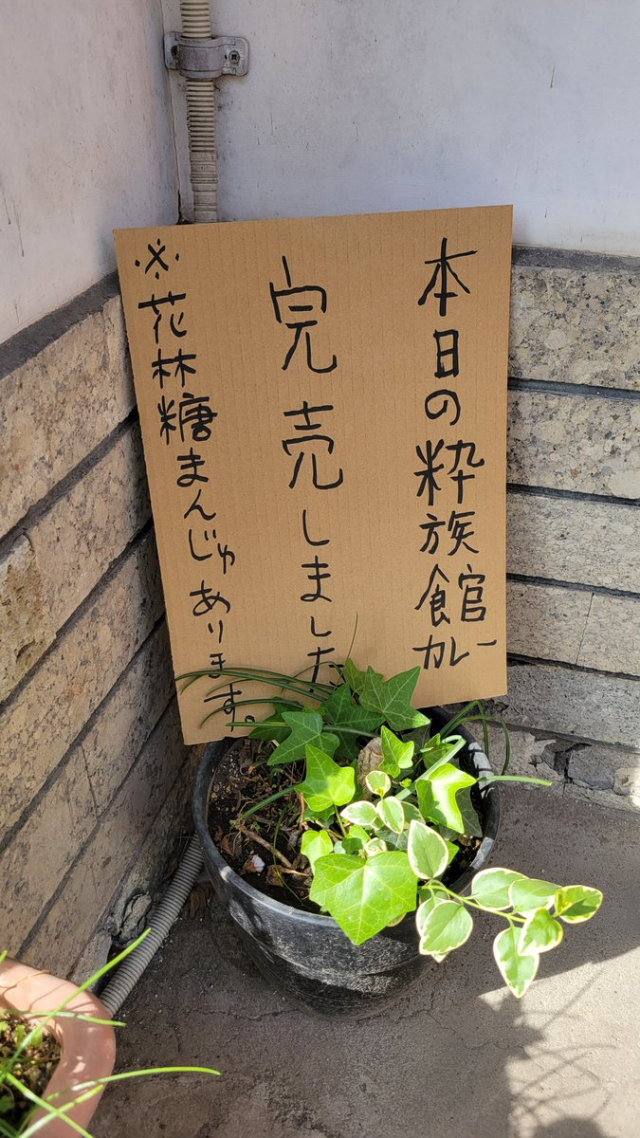 本日の粋族館カレー
完売しました
※花林糖まんじゅあります。